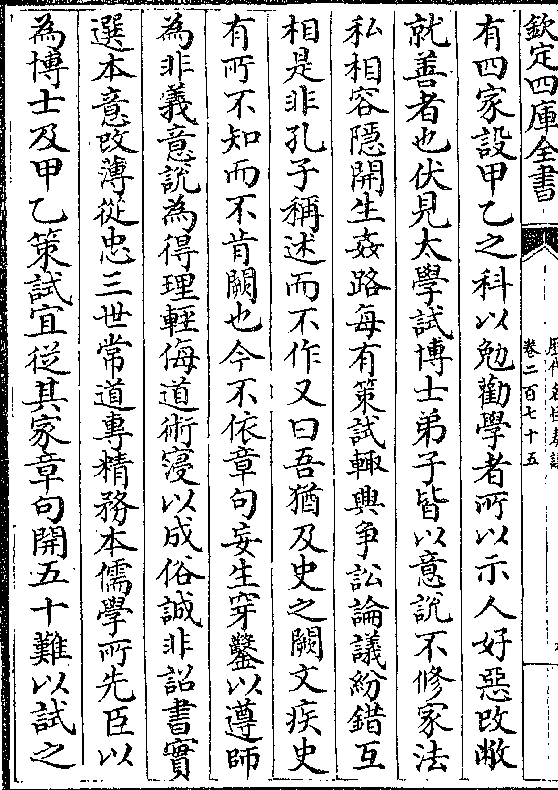 欽定四庫全書
卷二百七十五
有四家設甲乙之科以勉勸學者所以示人好惡改敝
就善者也伏見太學試博士弟子皆以意說不修家法
私相容隱開生姦路每有策試輒興爭訟論議紛錯互
相是非孔子稱述而不作又曰吾猶及史之闕文疾史
有所不知而不肯闕也今不依章句妄生穿鑿以遵師
為非義意說為得理輕侮道術寖以成俗誠非詔書實
選本意改薄從忠三世常道專精務本儒學所先臣以
為博士及甲乙策試宜從其家章句開五十難以試之